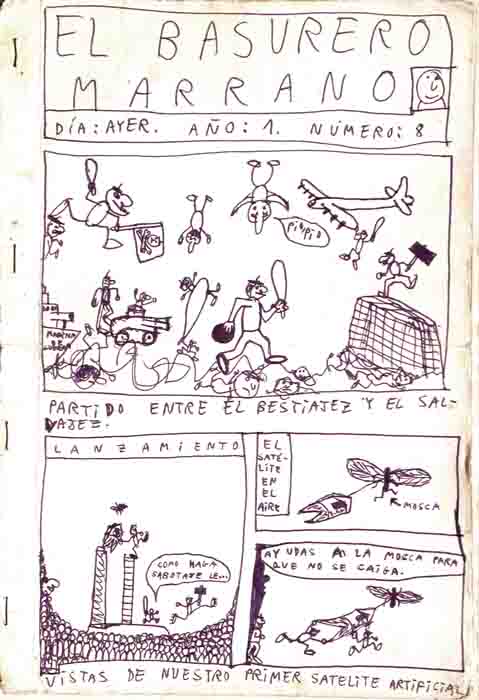 EL BASURERO
MARRANO
DÍA: AYER. AÑO: 1. NÚMERO: 8
PIOPIO
PARTIDO ENTRE EL BESTIAJEZ Y EL SAL-
VAJEZ.
LANZAMIENTO
COMO HAGA
SABOTAJE LE...
EL
SATÉ-
LITE
EN
EL
AIRE
MOSCA
AYUDAS A LA MOSCA PARA
QUE NO SE CAIGA.
VISTAS DE NUESTRO PRIMER SATELITE ARTIFICIAL